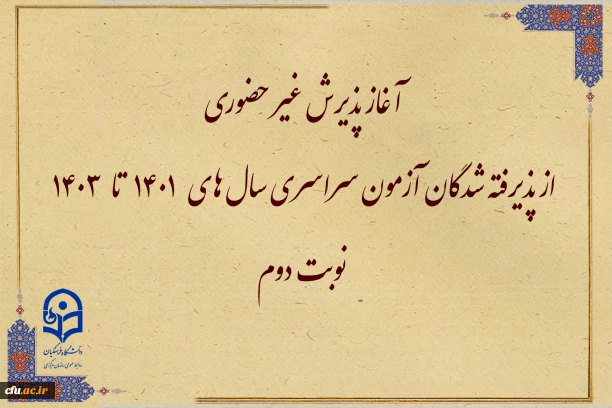 آغاز پذیرش غیر حضوری
از پذیرفته شدگان آزمون سراسری سال های ۱۴۰۱ تا ۱۴۰۳
نوبت دوم
دانشگاه فرهنگیان
روابط عمومی سازمان مرکزی
cfu.ac.ir